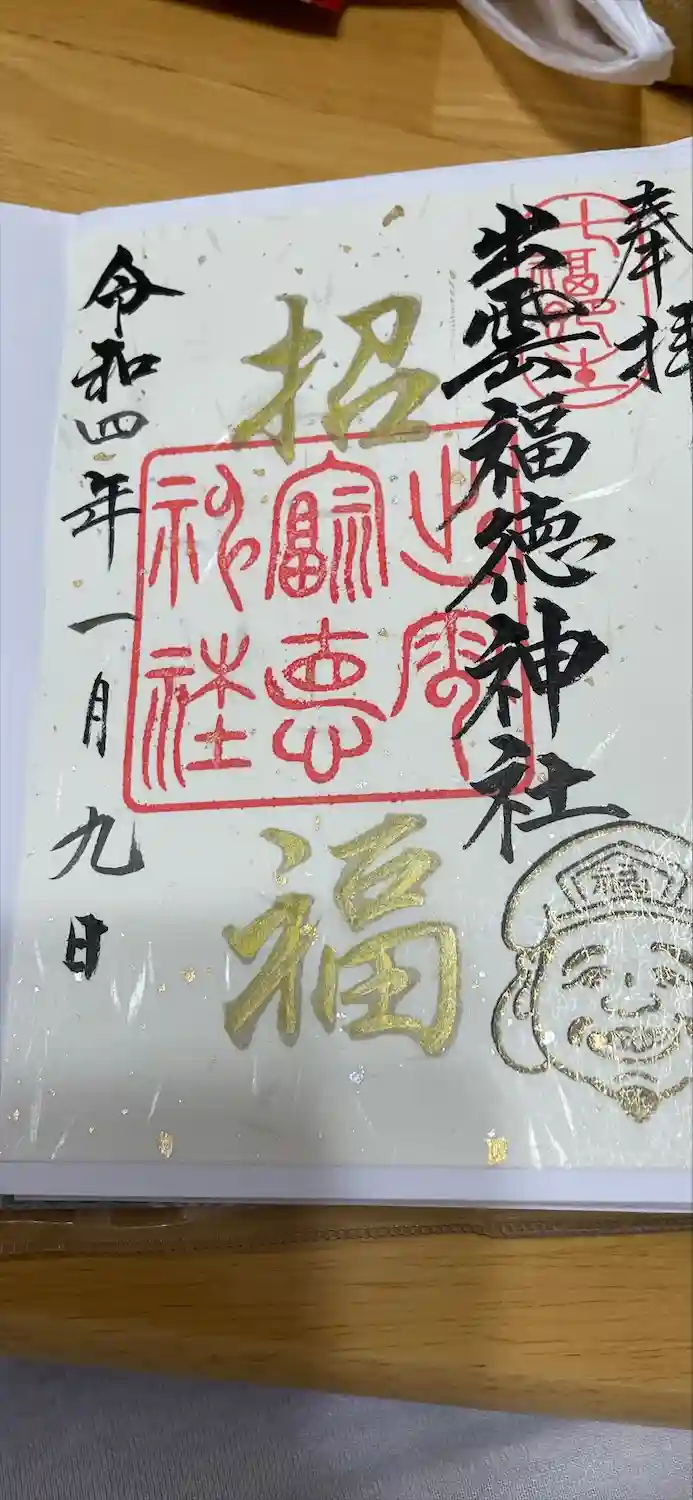 奉拝
七福即生
出雲福徳神社
招福
出雲
福徳
神社
福
令和四年一月九日